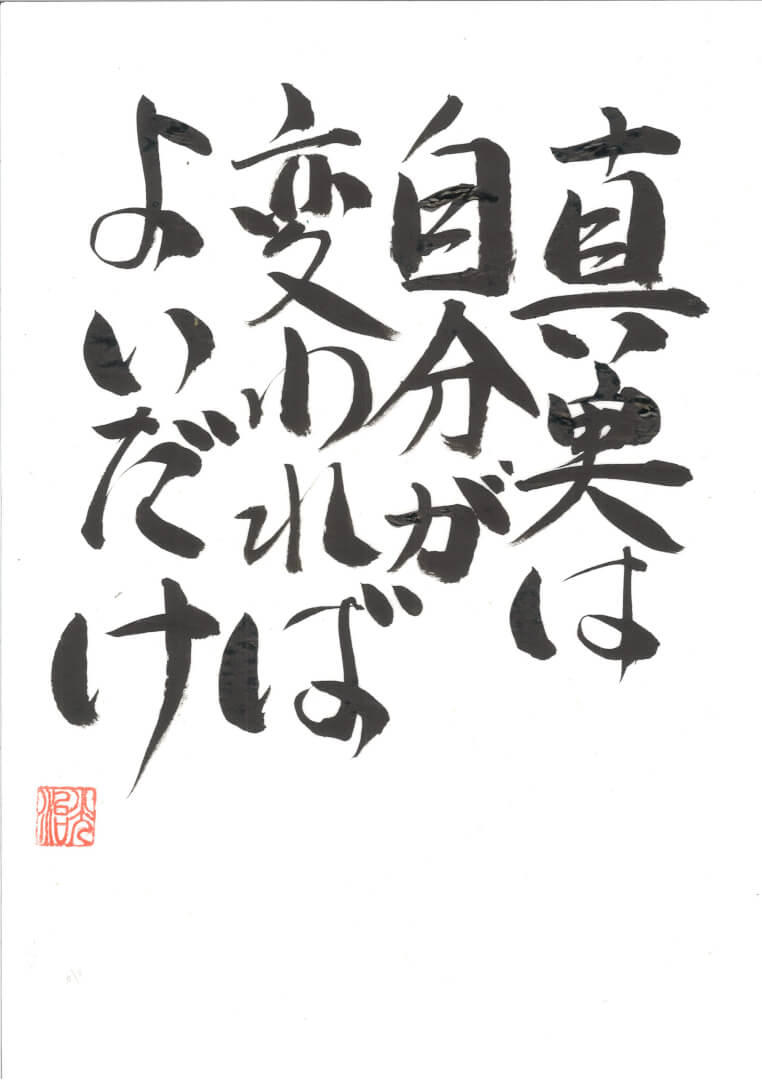 真実は
自分が
変われば
よいだけ